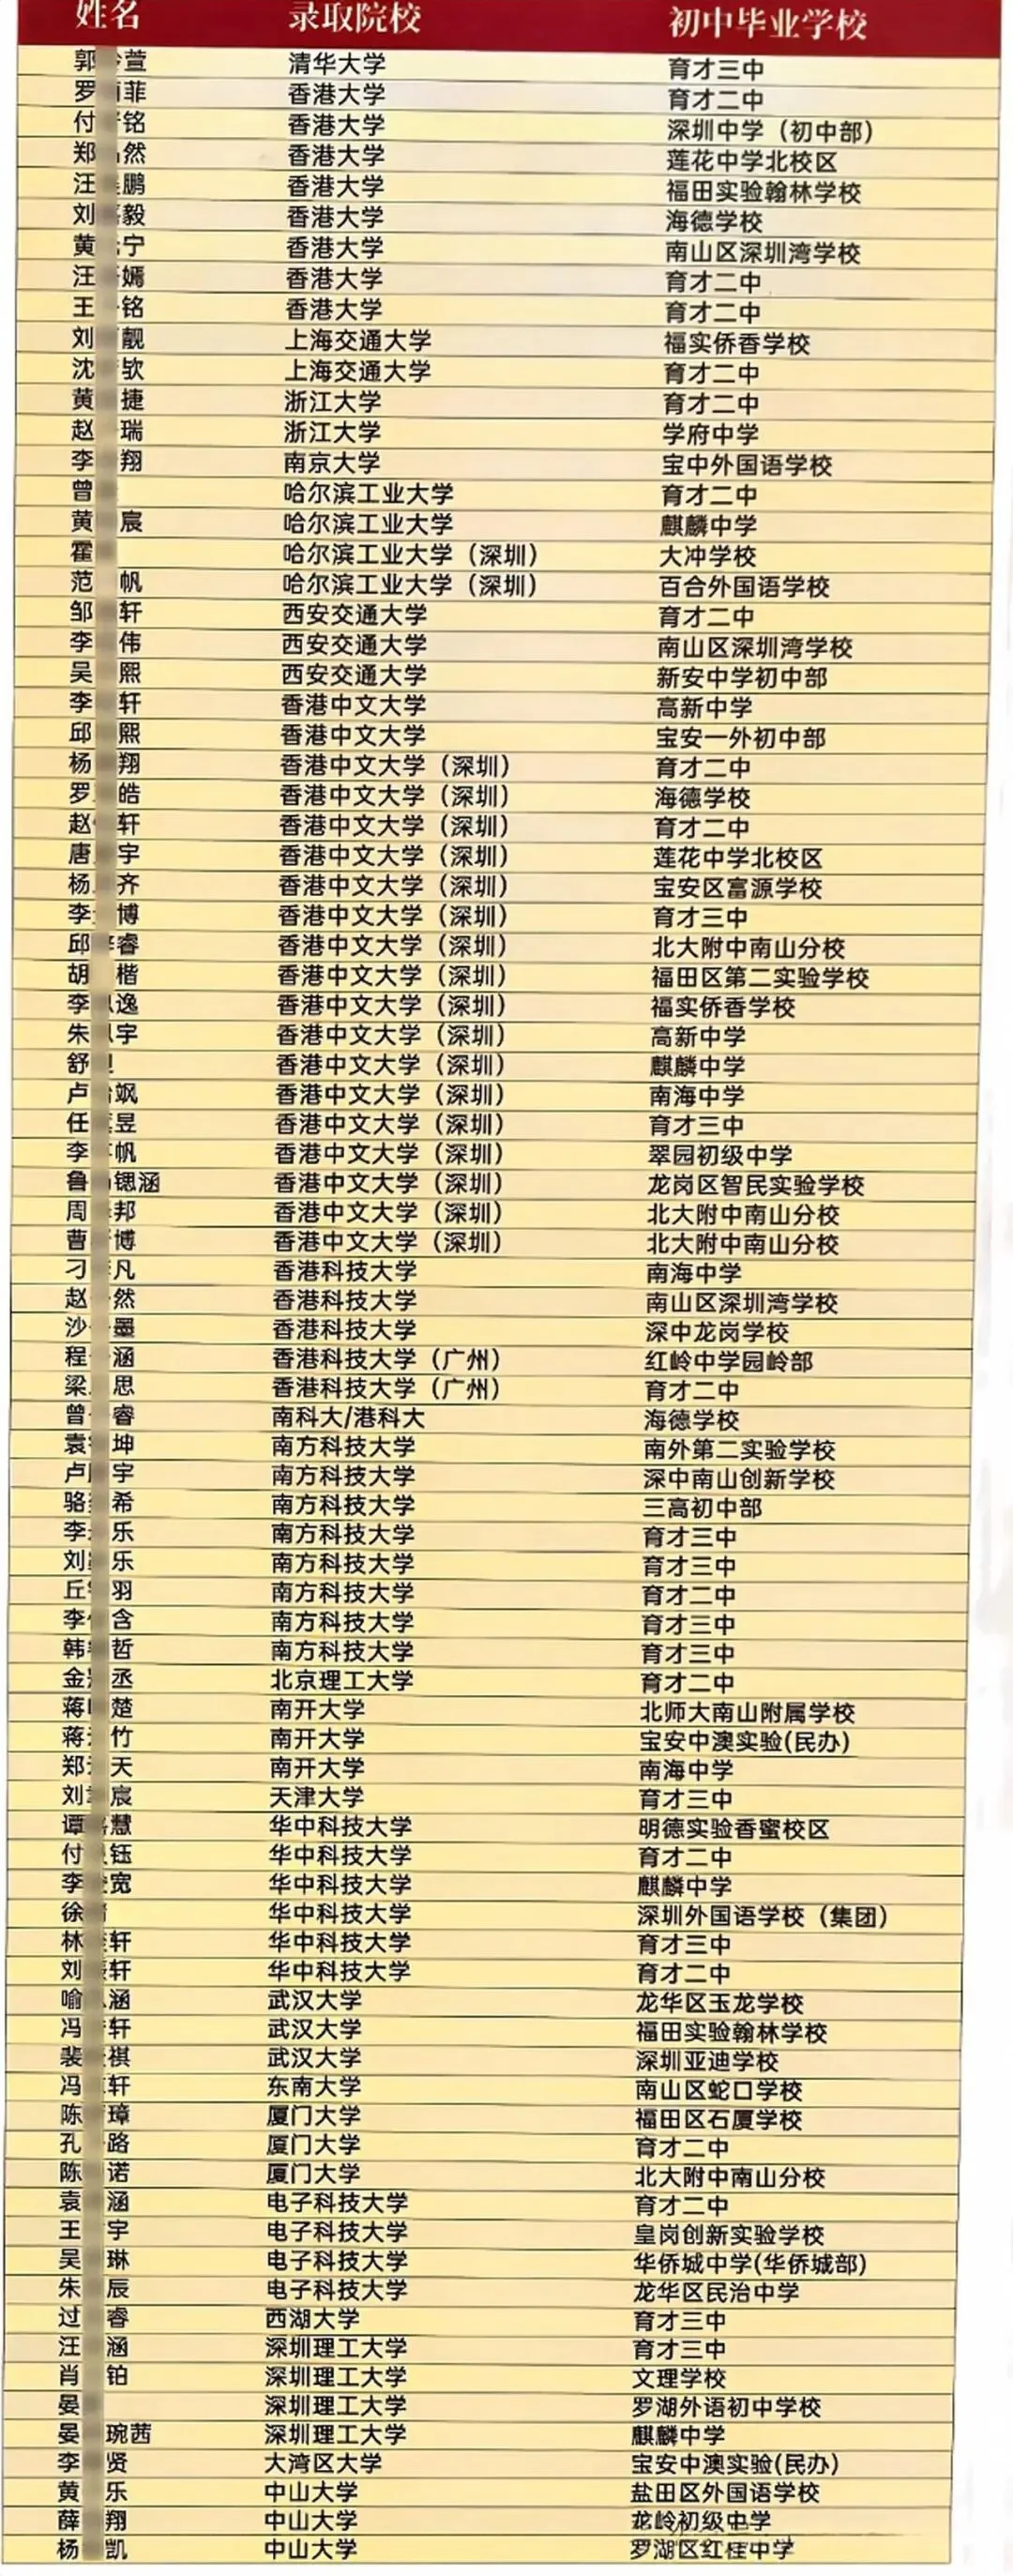 姓名 录取院校 初中毕业学校
郭 萱 清华大学 育才三中
罗 菲 香港大学 育才二中
付 铭 香港大学 深圳中学（初中部）
郑 然 香港大学 莲花中学北校区
汪 鹏 香港大学 福田实验翰林学校
刘 毅 香港大学 海德学校
黄 宁 香港大学 南山区深圳湾学校
汪 嫣 香港大学 育才二中
王 铭 香港大学 育才二中
刘 靓 上海交通大学 福实侨香学校
沈 钦 上海交通大学 育才二中
黄 捷 浙江大学 育才二中
赵 瑞 浙江大学 学府中学
李 翔 南京大学 宝中外国语学校
曾 哈尔滨工业大学 育才二中
黄 宸 哈尔滨工业大学 麒麟中学
霍 哈尔滨工业大学（深圳） 大冲学校
范 帆 哈尔滨工业大学（深圳） 百合外国语学校
邹 轩 西安交通大学 育才二中
李 伟 西安交通大学 南山区深圳湾学校
吴 熙 西安交通大学 新安中学初中部
李 轩 香港中文大学 高新中学
邱 熙 香港中文大学 宝安一外初中部
杨 翔 香港中文大学（深圳） 育才二中
罗 皓 香港中文大学（深圳） 海德学校
赵 轩 香港中文大学（深圳） 育才二中
唐 宇 香港中文大学（深圳） 莲花中学北校区
杨 齐 香港中文大学（深圳） 宝安区富源学校
李 博 香港中文大学（深圳） 育才三中
邱 睿 香港中文大学（深圳） 北大附中南山分校
胡 楷 香港中文大学（深圳） 福田区第二实验学校
李 逸 香港中文大学（深圳） 福实侨香学校
朱 宇 香港中文大学（深圳） 高新中学
舒 香港中文大学（深圳） 麒麟中学
卢 飒 香港中文大学（深圳） 南海中学
任 昱 香港中文大学（深圳） 育才三中
李 帆 香港中文大学（深圳） 翠园初级中学
鲁 锶涵 香港中文大学（深圳） 龙岗区智民实验学校
周 邦 香港中文大学（深圳） 北大附中南山分校
曹 博 香港中文大学（深圳） 北大附中南山分校
刁 凡 香港科技大学 南海中学
赵 然 香港科技大学 南山区深圳湾学校
沙 墨 香港科技大学 深中龙岗学校
程 涵 香港科技大学（广州） 红岭中学园岭部
梁 思 香港科技大学（广州） 育才二中
曾 睿 南科大/港科大 海德学校
袁 坤 南方科技大学 南外第二实验学校
卢 宇 南方科技大学 深中南山创新学校
骆 希 南方科技大学 三高初中部
李 乐 南方科技大学 育才三中
刘 乐 南方科技大学 育才三中
丘 羽 南方科技大学 育才二中
李 含 南方科技大学 育才三中
韩 哲 南方科技大学 育才三中
金 丞 北京理工大学 育才二中
蒋 楚 南开大学 北师大南山附属学校
蒋 竹 南开大学 宝安中澳实验(民办)
郑 天 南开大学 南海中学
刘 宸 天津大学 育才三中
谭 慧 华中科技大学 明德实验香蜜校区
付 钰 华中科技大学 育才二中
李 宽 华中科技大学 麒麟中学
徐 华中科技大学 深圳外国语学校（集团）
林 轩 华中科技大学 育才三中
刘 轩 华中科技大学 育才二中
喻 涵 武汉大学 龙华区玉龙学校
冯 轩 武汉大学 福田实验翰林学校
裴 祺 武汉大学 深圳亚迪学校
冯 轩 东南大学 南山区蛇口学校
陈 璋 厦门大学 福田区石厦学校
孔 路 厦门大学 育才二中
陈 诺 厦门大学 北大附中南山分校
袁 涵 电子科技大学 育才二中
王 宇 电子科技大学 皇岗创新实验学校
吴 琳 电子科技大学 华侨城中学(华侨城部)
朱 辰 电子科技大学 龙华区民治中学
过 睿 西湖大学 育才三中
汪 涵 深圳理工大学 育才三中
肖 铂 深圳理工大学 文理学校
晏 深圳理工大学 罗湖外语初中学校
晏 琬茜 深圳理工大学 麒麟中学
李 贤 大湾区大学 宝安中澳实验(民办)
黄 乐 中山大学 盐田区外国语学校
薛 翔 中山大学 龙岭初级中学
杨 凯 中山大学 罗湖区红桂中学